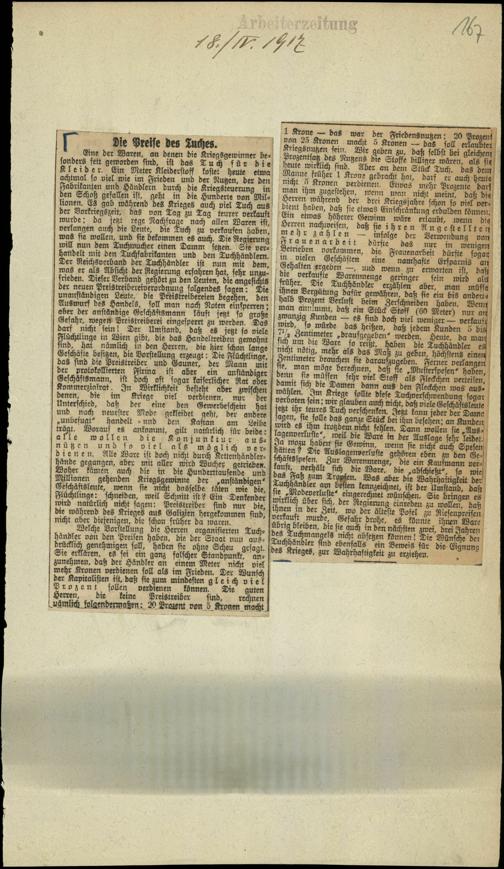 Arbeiterzeitung
18./IV. 1917
167
Die Preise des Tuches.
Eine der Waren, an denen die Kriegsgewinner be-
sonders fett geworden sind, ist das Tuch für die
Kleider. Ein Meter Kleiderstoff kostet heute etwa
achtmal so viel wie im Frieden und der Nutzen, der den
Fabrikanten und Händlern durch die Kriegsteuerung in
den Schoß gefallen ist, geht in die Hunderte von Mil-
lionen. Es gab während des Krieges auch viel Tuch aus
der Vorkriegszeit, das von Tag zu Tag teurer verkauft
wurde; da jetzt rege Nachfrage nach allen Waren ist,
verlangen auch die Leute, die Tuch zu verkaufen haben,
was sie wollen, und sie bekommen es auch. Die Regierung
will nun dem Tuchwucher einen Damm setzen. Sie ver-
handelt mit den Tuchfabrikanten und den Tuchhändlern.
Der Reichsverband der Tuchhändler ist nun mit dem,
was er als Absicht der Regierung erfahren hat, sehr unzu-
frieden. Dieser Verband gehört zu den Leuten, die angesichts
der neuen Preistreibereiverordnung folgendes sagen: Die
unanständigen Leute, die Preistreibereien begehen, den
Auswurf des Handels, soll man nach Noten einsperren;
aber der anständige Geschäftsmann läuft jetzt so große
Gefahr, wegen Preistreiberei eingesperrt zu werden. Das
darf nicht sein! Der Umstand, daß es jetzt so viele
Flüchtlinge in Wien gibt, die das Handelstreiben gewohnt
sind, hat nämlich in den Herren, die hier schon lange
Geschäfte besitzen, die Vorstellung erzeugt: Die Flüchtlinge,
das sind die Preistreiber und Gauner, der Mann mit
der protokollierten Firma ist aber ein anständiger
Geschäftsmann, ist doch oft sogar kaiserlicher Rat oder
Kommerzialrat. In Wirklichkeit besteht aber zwischen
denen, die im Kriege viel verdienen, nur der
Unterschied, daß der eine den Gewerbeschein hat
und nach neuester Mode gekleidet geht, der andere
„unbefugt“ handelt und den Kaftan am Leibe
trägt. Worauf es ankommt, gilt natürlich für beide:
alle wollen die Konjunktur aus-
nützen und so viel als möglich ver-
dienen. Alle Ware ist doch nicht durch Kettenhändler-
hände gegangen, aber mit aller wird Wucher getrieben.
Woher kämen auch die in die Hunderttausende und
Millionen gehenden Kriegsgewinne der „anständigen“
Geschäftsleute, wenn sie nicht dasselbe täten wie die,
Flüchtlinge: schneiden, weil Schnitt ist? Ein Denkender
wird natürlich nicht sagen: Preistreiber sind nur die,
die während des Krieges aus Galizien hergekommen sind,
nicht aber diejenigen, die schon früher da waren.
Welche Vorstellung die Herren organisierten Tuch-
händler von den Preisen haben, die der Staat nun aus-
drücklich genehmigen soll, haben sie ohne Scheu gesagt.
Sie erklären, es sei ein ganz falscher Standpunkt, an-
zunehmen, daß der Händler an einem Meter nicht viel
mehr Kronen verdienen soll als im Frieden. Der Wunsch
der Kapitalisten ist, daß sie zum mindesten gleich viel
Prozent sollen verdienen können. Die guten
Herren, die keine Preistreiber sind, rechnen
nämlich folgendermaßen: 20 Prozent von 5 Kronen macht
1 Krone — das war der Friedensnutzen; 20 Prozent
von 25 Kronen macht 5 Kronen — das soll erlaubter
Kriegsnutzen sein. Wir geben zu, daß selbst bei gleichem
Prozentsatz des Nutzens die Stoffe billiger wären, als sie
heute wirklich sind. Aber an dem Stück Tuch, das dem
Manne früher 1 Krone gebracht hat, darf er auch heute
nicht 5 Kronen verdienen. Etwas mehr Prozente darf
man ihm zugestehen, wenn man nicht meint, daß die
Herren während der drei Kriegsjahre schon so viel ver-
dient haben, daß sie etwas Einschränkung erdulden können.
Ein etwas höherer Gewinn wäre erlaubt, wenn die
Herren nachweisen, daß sie ihren Angestellten
mehr zahlen — infolge der Verwendung von
Frauenarbeit dürfte das nur in wenigen
Betrieben vorkommen, die Frauenarbeit dürfte sogar
in vielen Geschäften eine namhafte Ersparnis an
Gehalten ergeben —, und wenn zu erwarten ist, daß
die verkaufte Warenmenge geringer sein wird als
früher. Die Tuchhändler erzählen aber, man müsse
ihnen Vergütung dafür gewähren, daß sie ein bis andert-
halb Prozent Verlust beim Zerschneiden haben. Wenn
man annimmt, daß ein Stück Stoff (60 Meter) nur an
zwanzig Kunden — es sind doch viel weniger — verkauft
wird, so würde das heißen, daß jedem Kunden 5 bis
7½ Zentimeter „draufgegeben“ werden. Heute, da man
sich um die Ware so reißt, haben die Tuchhändler es
nicht nötig, mehr als das Maß zu geben, höchstens einen
Zentimeter brauchen sie daraufzugeben. Ferner verlangen
sie, man möge berechnen, daß sie „Musterspesen“ haben,
denn sie müssen sehr viel Stoff als Fleckchen verteilen,
damit sich die Damen dann aus den Fleckchen was aus-
wählen. Im Kriege sollte diese Tuchverschwendung sogar
verboten sein; wir glauben auch nicht, daß viele Geschäftsleute
jetzt ihr teures Tuch verschenken. Jetzt kann jeder der Damen
sagen, sie solle das ganze Stück bei ihm besehen; an Kunden
wird es ihm trotzdem nicht fehlen. Dann wollen sie „Aus-
lagenverluste“, weil die Ware in der Auslage sehr leide.
Ja wozu haben sie Gewinn, wenn sie nicht auch Spesen
hätten? Die Auslagenverluste gehören eben zu den Ge-
schäftsspesen. Zur Warenmenge, die ein Kaufmann ver-
kauft, verhält sich die Ware, die „abschießt“, so wie
das Faß zum Tropfen. Was aber die Wahrhaftigkeit der
Tuchhändler am besten kennzeichnet, ist der Umstand, daß
sie „Modeverluste“ eingerechnet wünschen. Sie bringen es
wirklich über sich, der Regierung einreden zu wollen, daß
ihnen in der Zeit, wo der älteste Pofel zu Riesenpreisen
verkauft wurde, Gefahr drohe, es könnte ihnen Ware
übrig bleiben, die sie auch in den nächsten zwei, drei Jahren
des Tuchmangels nicht absetzen können! Die Wünsche der
Tuchhändler sind ebenfalls ein Beweis für die Eignung
des Krieges, zur Wahrhaftigkeit zu erziehen.